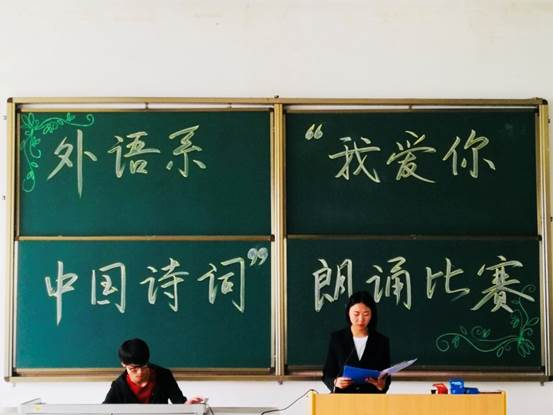 外语系
“我爱你
中国诗词”
朗诵比赛